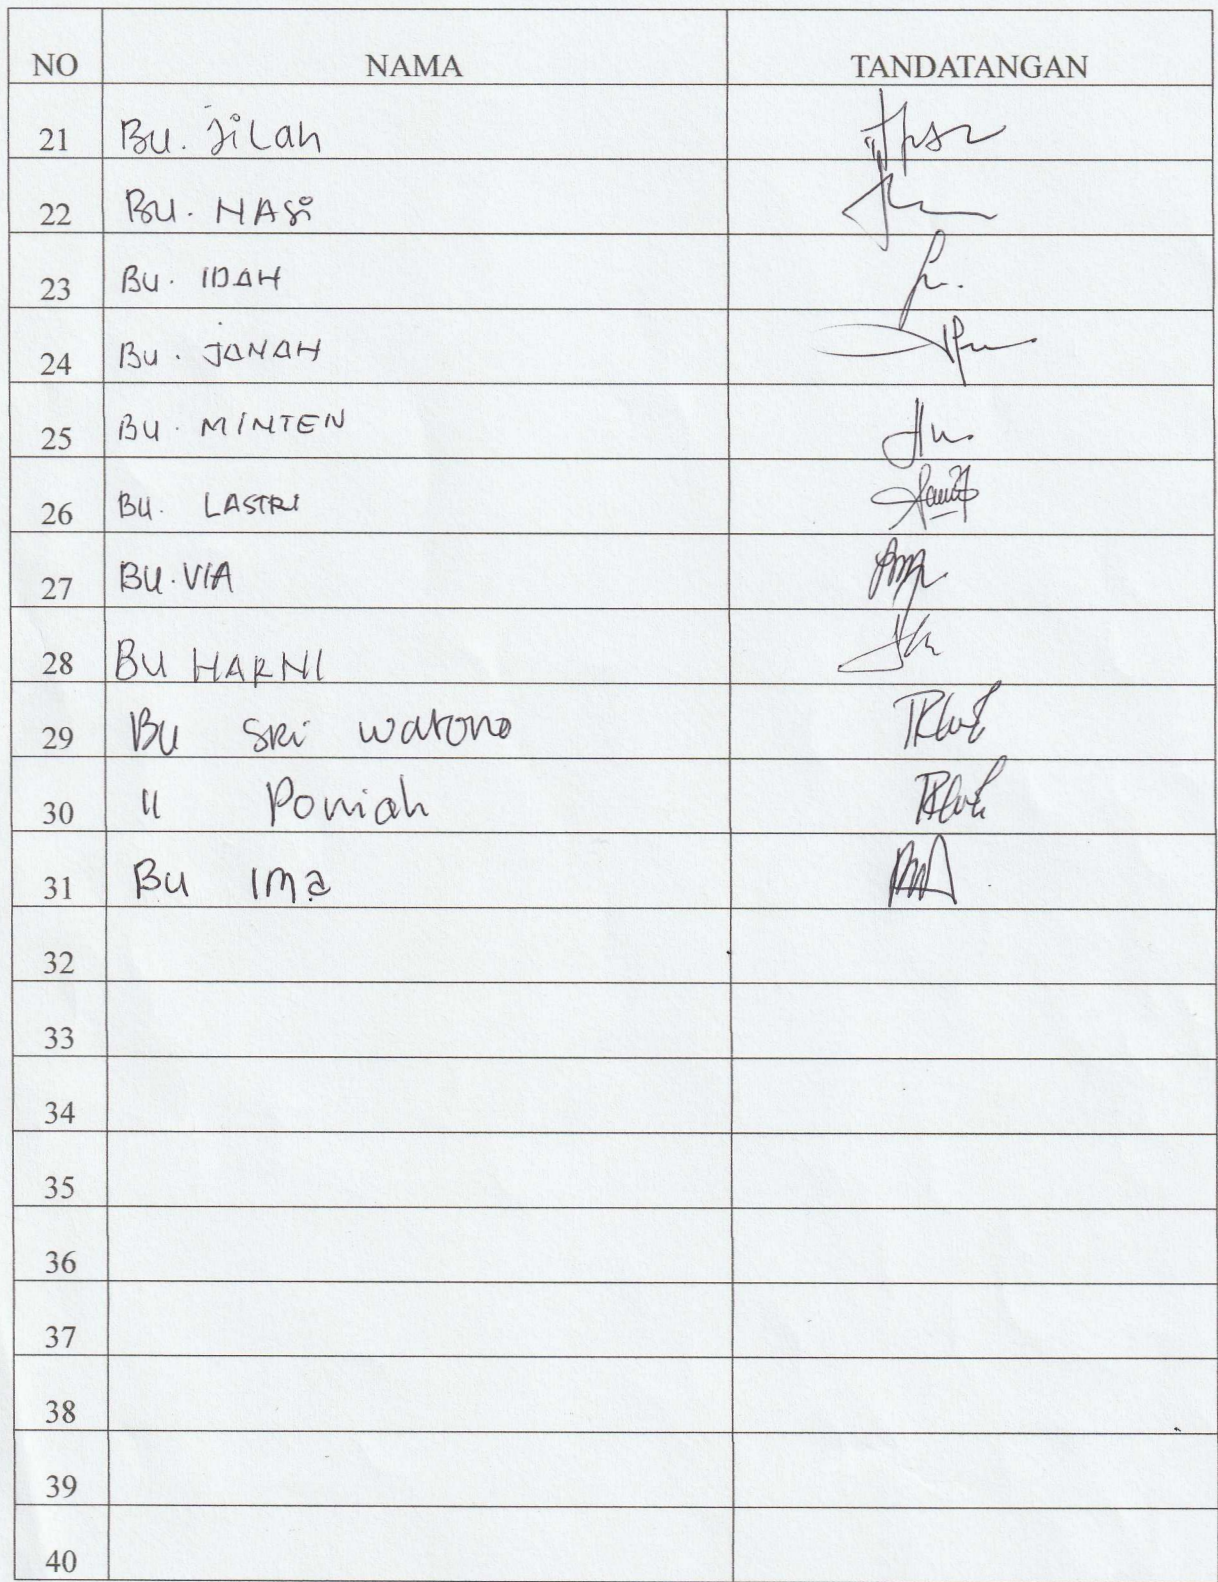 NO NAMA TANDATANGAN
21 Bu. Jilah
22 BU. NASi
23 Bu. IDAH
24 Bu. JANAH
25 BU. MINTEN
26 BU. LASTRI
27 BU. VIA
28 BU HARNI
29 Bu SRi Watono
30 " Poniah
31 Bu Ima
32
33
34
35
36
37
38
39
40